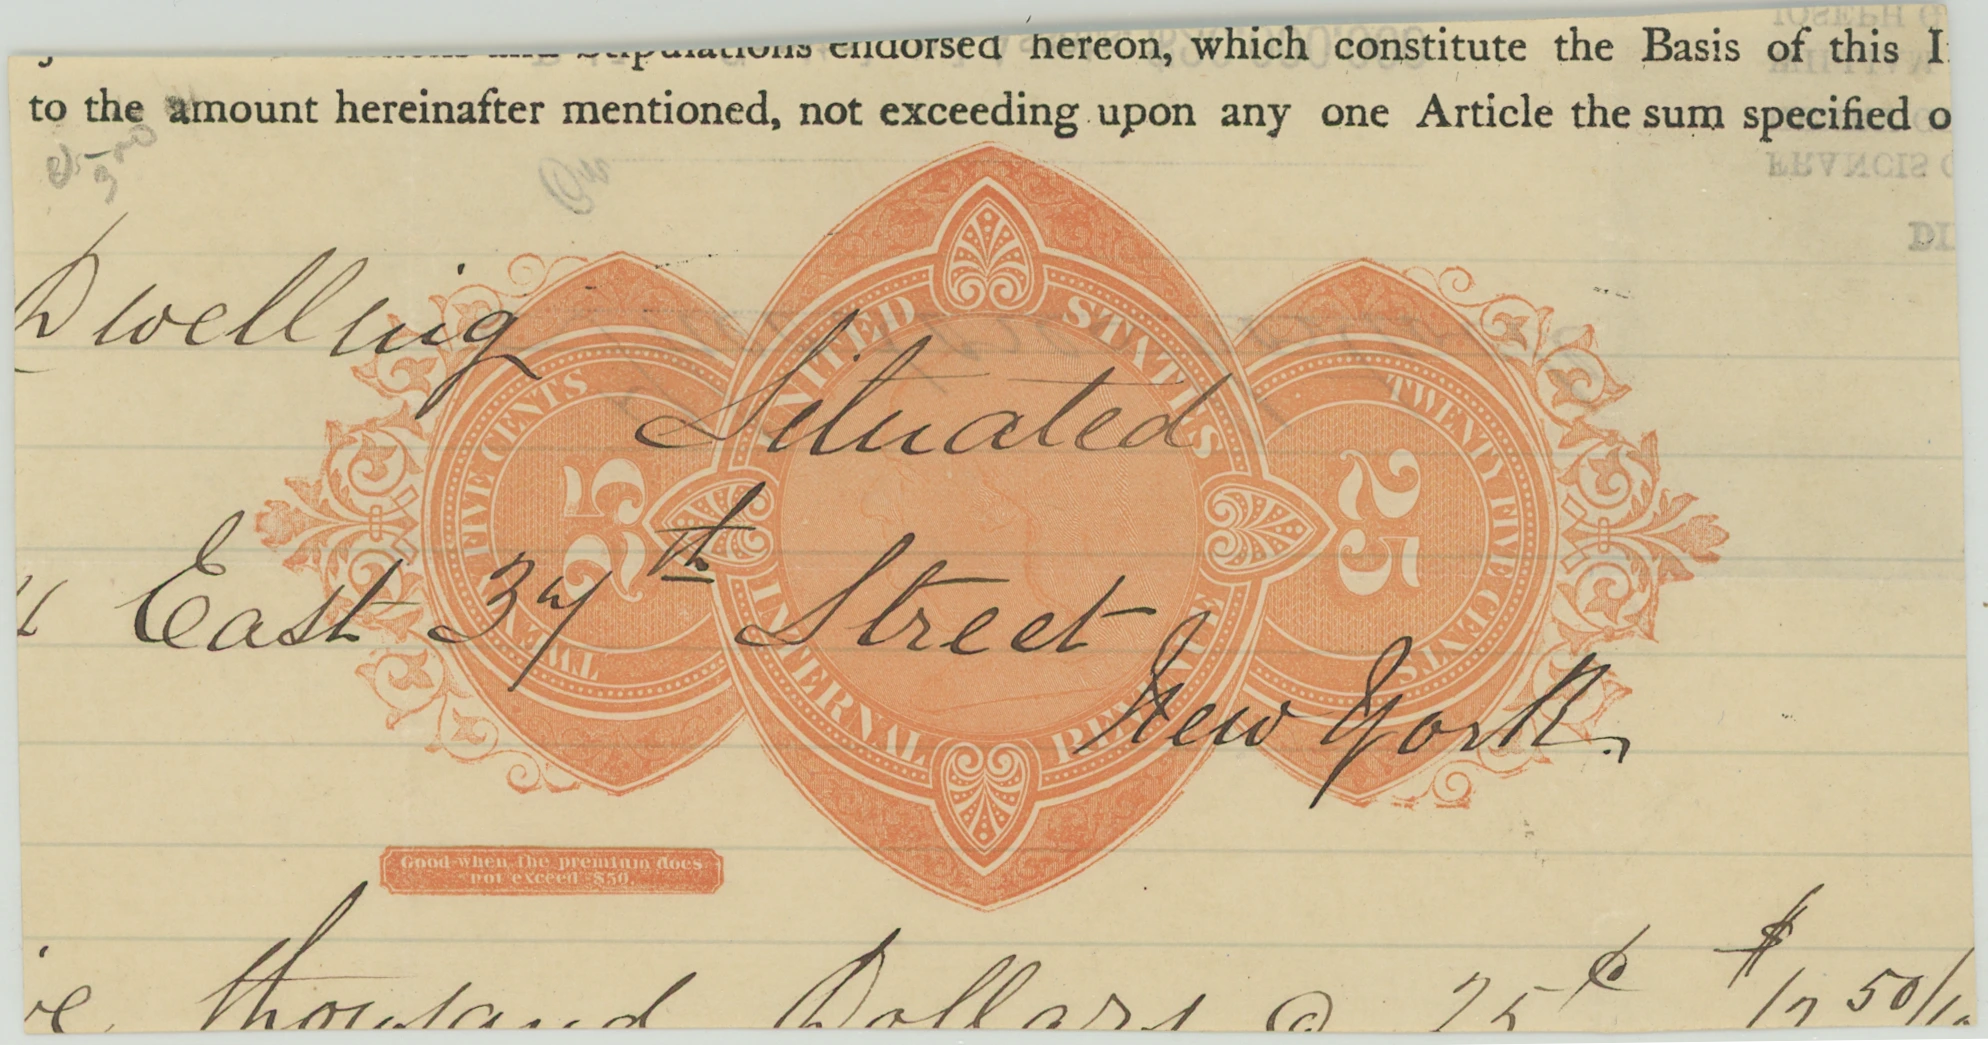 Stipulations endorsed hereon, which constitute the Basis of this I
to the amount hereinafter mentioned, not exceeding upon any one Article the sum specified o
Dwelling
Situated
East 37th Street
New York
UNITED STATES
INTERNAL REVENUE
TWENTY FIVE CENTS
25
TWENTY FIVE CENTS
25
Good when the premium does
not exceed $50.
thousand Dollars @ 25 ¢ $12 50/10